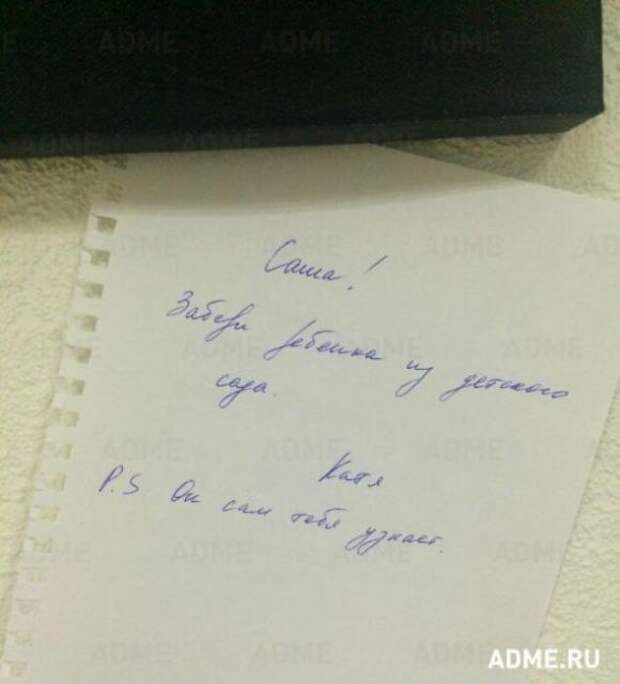 Саша!
Забери ребенка из детского
сада.
Катя
P.S Он сам тебя узнает.
ADME.RU